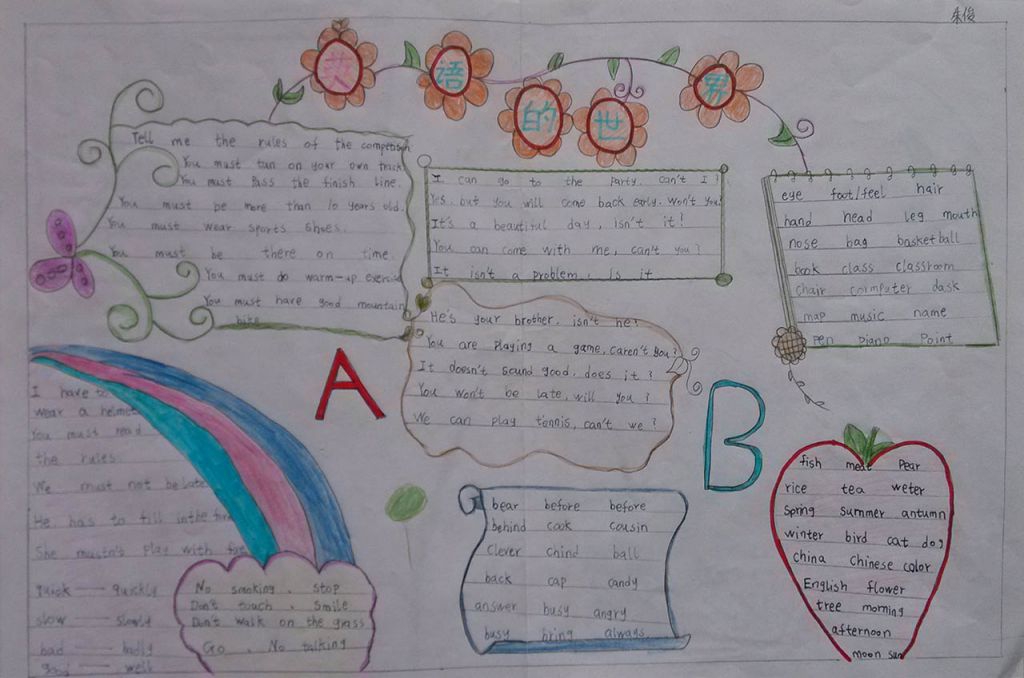 朱俊
英语的世界
Tell me the rules of the competish
You must tan on your own track
You must Pass the finish line.
You must be more than 10 years old.
You must wear sports shoes.
You must be there on time.
You must do warm-up exercis
You must have good mountain
bike
I can go to the Party. Can't I?
Yes, but you will come back early. Won't you
It's a beautiful day, Isn't it!
You can come with me, can't you?
It isn't a problem, Is it
eye foot/feel hair
hand head leg mouth
nose bag basketball
book class classroom
chair cormputer dask
map music name
Pen piano Point
He's your brother. isn't he?
You are playing a game, caren't you?
It doesn't sound good, does it?
You won't be late, will you?
We can play tennis, can't we?
A
B
I have to
wear a helmet
You must read
the rules.
We must not be late
He has to fill in the form
She mustn't Play with
quick — quickly
slow — slowly
bad — badly
good — well
No smoking. stop
Don't touch. Smile
Don't walk on the grass
Go. No talking
bear before before
behind cook cousin
clever chind ball
back cap candy
answer busy angry
busy bring always.
fish meat Pear
rice tea weter
spring summer antumn
winter bird cat dog
china chinese color
English flower
tree morning
afternoon
moon sun